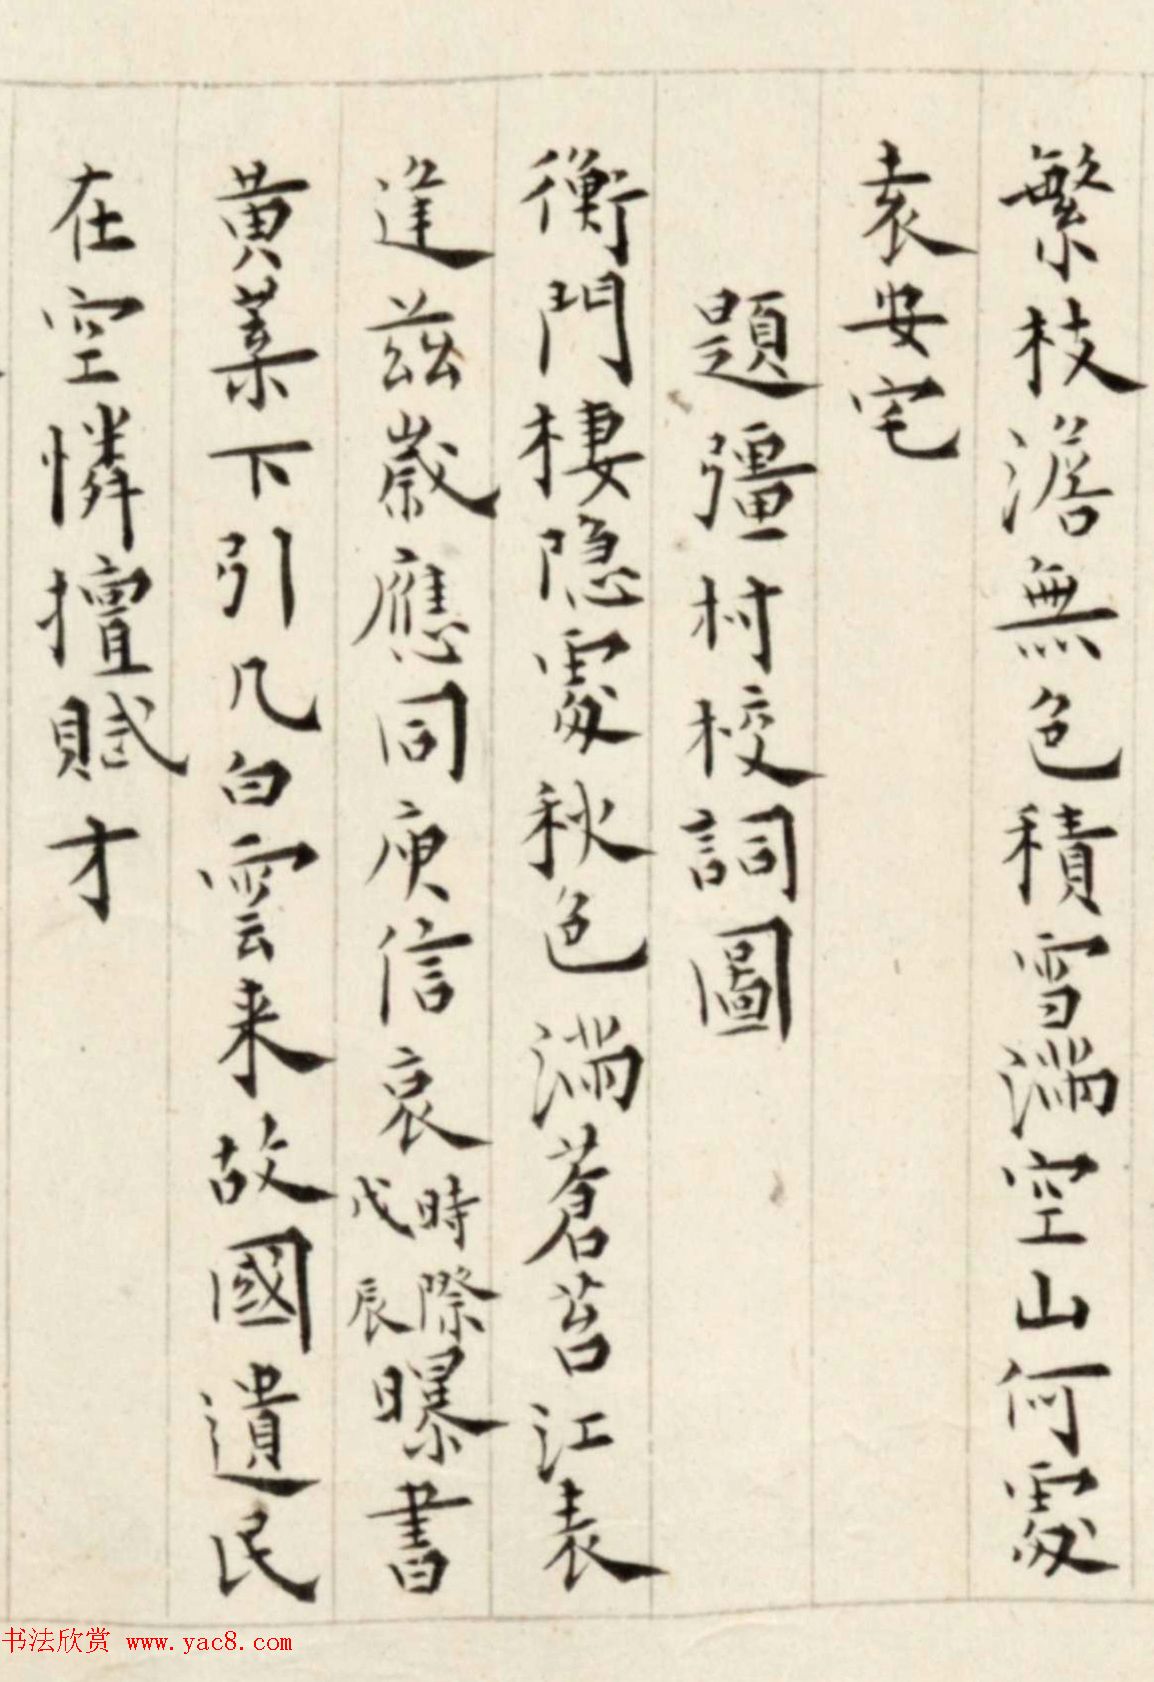 繁枝澹無色積雪滿空山何處
袁安宅
題彊村校詞圖
衡門棲隱處秋色滿蒼苔江表
逢茲歲應同庾信哀時際戊辰曝書
黄葉下引几白雲来故國遺民
在空憐擅賦才
书法欣赏 www.yac8.com